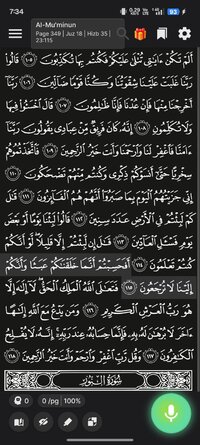 7:34
0.29 KB/s
93
Al-Mu'minun
Page 349 | Juz 18 | Hizb 35 |
23:115
أَلَمْ تَكُنْ ءَايَٰتِى تُتْلَىٰ عَلَيْكُمْ فَكُنتُم بِهَا تُكَذِّبُونَ ١٠٥ قَالُوا۟ رَبَّنَا
غَلَبَتْ عَلَيْنَا شِقْوَتُنَا وَكُنَّا قَوْمًا ضَآلِّينَ ١٠٦ رَبَّنَآ
أَخْرِجْنَا مِنْهَا فَإِنْ عُدْنَا فَإِنَّا ظَٰلِمُونَ ١٠٧ قَالَ ٱخْسَـُٔوا۟ فِيهَا
وَلَا تُكَلِّمُونِ ١٠٨ إِنَّهُۥ كَانَ فَرِيقٌ مِّنْ عِبَادِى يَقُولُونَ رَبَّنَآ
ءَامَنَّا فَٱغْفِرْ لَنَا وَٱرْحَمْنَا وَأَنتَ خَيْرُ ٱلرَّٰحِمِينَ ١٠٩ فَٱتَّخَذْتُمُوهُمْ
سِخْرِيًّا حَتَّىٰٓ أَنسَوْكُمْ ذِكْرِى وَكُنتُم مِّنْهُمْ تَضْحَكُونَ ١١٠
إِنِّى جَزَيْتُهُمُ ٱلْيَوْمَ بِمَا صَبَرُوٓا۟ أَنَّهُمْ هُمُ ٱلْفَآئِزُونَ ١١١ قَٰلَ
كَمْ لَبِثْتُمْ فِى ٱلْأَرْضِ عَدَدَ سِنِينَ ١١٢ قَالُوا۟ لَبِثْنَا يَوْمًا أَوْ بَعْضَ
يَوْمٍ فَسْـَٔلِ ٱلْعَآدِّينَ ١١٣ قَٰلَ إِن لَّبِثْتُمْ إِلَّا قَلِيلًا لَّوْ أَنَّكُمْ
كُنتُمْ تَعْلَمُونَ ١١٤ أَفَحَسِبْتُمْ أَنَّمَا خَلَقْنَٰكُمْ عَبَثًا وَأَنَّكُمْ
إِلَيْنَا لَا تُرْجَعُونَ ١١٥ فَتَعَٰلَى ٱللَّهُ ٱلْمَلِكُ ٱلْحَقُّ لَآ إِلَٰهَ إِلَّا
هُوَ رَبُّ ٱلْعَرْشِ ٱلْكَرِيمِ ١١٦ وَمَن يَدْعُ مَعَ ٱللَّهِ إِلَٰهًا
ءَاخَرَ لَا بُرْهَٰنَ لَهُۥ بِهِۦ فَإِنَّمَا حِسَابُهُۥ عِندَ رَبِّهِۦٓ إِنَّهُۥ لَا يُفْلِحُ
ٱلْكَٰفِرُونَ ١١٧ وَقُل رَّبِّ ٱغْفِرْ وَٱرْحَمْ وَأَنتَ خَيْرُ ٱلرَّٰحِمِينَ ١١٨
سُورَةُ النُّورِ
0
0 /pg
100%